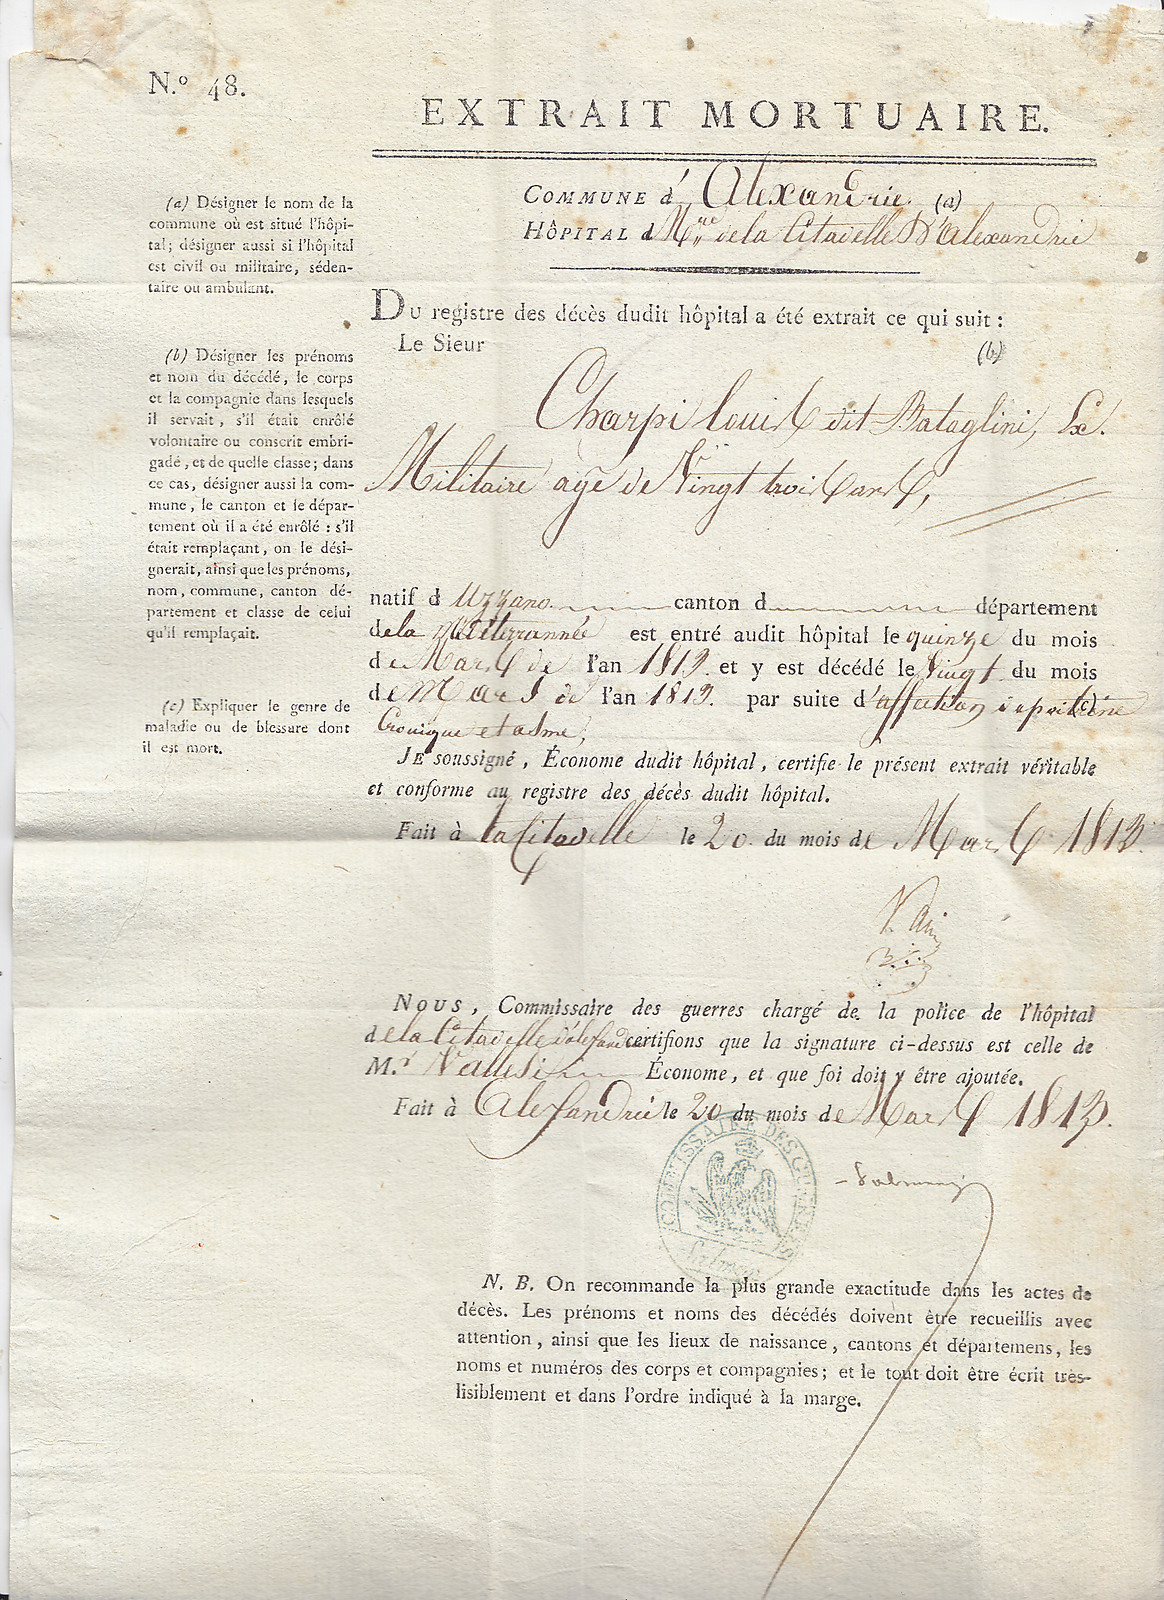 N.º 48.
EXTRAIT MORTUAIRE.
COMMUNE d' Alexandrie. (a)
HÔPITAL d Mre de la Citadelle D'Alexandrie
(a) Désigner le nom de la
commune où est situé l'hôpi-
tal; désigner aussi si l'hôpital
est civil ou militaire, séden-
taire ou ambulant.
DU registre des décès dudit hôpital a été extrait ce qui suit :
Le Sieur (b)
Charpi Louis dit Bataglini, Ex.
Militaire agé de Vingt trois ans,
(b) Désigner les prénoms
et nom du décédé, le corps
et la compagnie dans lesquels
il servait, s'il était enrôlé
volontaire ou conscrit embri-
gadé, et de quelle classe; dans
ce cas, désigner aussi la com-
mune, le canton et le dépar-
tement où il a été enrôlé : s'il
était remplaçant, on le dési-
gnerait, ainsi que les prénoms,
nom, commune, canton dé-
partement et classe de celui
qu'il remplaçait.
natif d Uzzano canton d département
de la Méditerrannée est entré audit hôpital le quinze du mois
de Mars de l'an 1813. et y est décédé le Vingt du mois
de Mars de l'an 1813. par suite d'affection (c)
Cronique et asme,
(c) Expliquer le genre de
maladie ou de blessure dont
il est mort.
JE soussigné, Économe dudit hôpital, certifie le présent extrait véritable
et conforme au registre des décès dudit hôpital.
Fait à la Citadelle le 20. du mois de Mars 1813.
NOUS, Commissaire des guerres chargé de la police de l'hôpital
de la Citadelle d'alexandrie certifions que la signature ci-dessus est celle de
M.r Vallesi Économe, et que foi doit y être ajoutée.
Fait à Alexandrie le 20 du mois de Mars 1813.
COMMISSAIRE DES GUERRES
N. B. On recommande la plus grande exactitude dans les actes de
décès. Les prénoms et noms des décédés doivent être recueillis avec
attention, ainsi que les lieux de naissance, cantons et départemens, les
noms et numéros des corps et compagnies; et le tout doit être écrit très-
lisiblement et dans l'ordre indiqué à la marge.